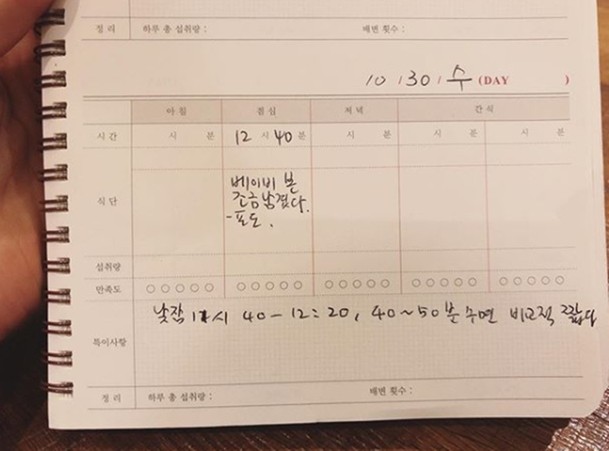 정 리 하루 총 섭취량 : 배변 횟수 :
10 / 30 / 수 (DAY )
아 침 점 심 저 녁 간 식
시 간 시 분 12 시 40 분 시 분 시 분 시 분
식 단 베이비 본
조금남겼다.
-포도.
섭취량
만족도 ○○○○○ ○○○○○ ○○○○○ ○○○○○ ○○○○○
낮잠 11시 40 - 12:20, 40~50분 수면 비교적 짧다
특이사항
정 리 하루 총 섭취량 : 배변 횟수 :